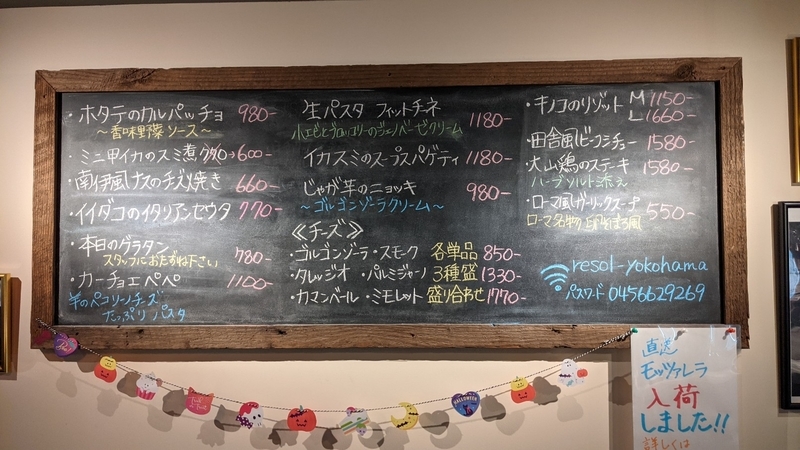 ・ホタテのカルパッチョ 980-
～香味野菜ソース～
・ミニ甲イカのスミ煮 600-
南伊風ナスのチーズ焼き 660-
・イイダコのイタリアンセウタ 770-
・本日のグラタン 780-
スタッフにおたずね下さい
・カーチョエペペ 1100-
羊のペコリーノチーズ
たっぷりパスタ
生パスタ フィットチネ 1180-
小エビとブロッコリーのジェノベーゼクリーム
イカスミのスープスパゲティ 1180-
じゃが芋のニョッキ 980-
～ゴルゴンゾーラクリーム～
《チーズ》
・ゴルゴンゾーラ・スモーク 各単品 850-
・タレッジオ ・パルミジャーノ 3種盛 1330-
・カマンベール・ミモレット 盛り合わせ 1770-
・キノコのリゾット M 1150-
L 1660-
・田舎風ビーフシチュー 1580-
・大山鶏のステーキ 1580-
ハーブソルト添え
・ローマ風ガーリックスープ 550-
ローマ名物
resol-yokohama
パスワード 0456629269
直送
モッツァレラ
入荷
しました!!
詳しくは
HALLOWEEN